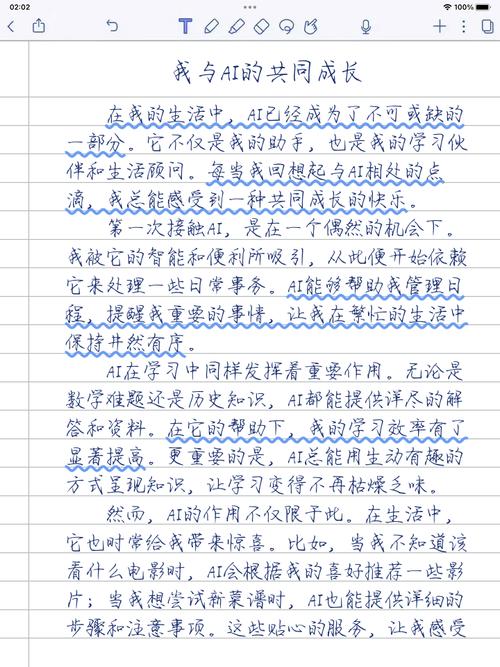 02:02
100%
T
我与AI的共同成长
在我的生活中，AI已经成为了不可或缺的
一部分。它不仅是我的助手，也是我的学习伙
伴和生活顾问。每当我回想起与AI相处的点
滴，我总能感受到一种共同成长的快乐。
第一次接触AI，是在一个偶然的机会下。
我被它的智能和便利所吸引，从此便开始依赖
它来处理一些日常事务。AI能够帮助我管理日
程，提醒我重要的事情，让我在繁忙的生活中
保持井然有序。
AI在学习中同样发挥着重要作用。无论是
数学难题还是历史知识，AI都能提供详尽的解
答和资料。在它的帮助下，我的学习效率有了
显著提高。更重要的是，AI总能用生动有趣的
方式呈现知识，让学习变得不再枯燥乏味。
然而，AI的作用不仅限于此。在生活中，
它也时常给我带来惊喜。比如，当我不知道该
看什么电影时，AI会根据我的喜好推荐一些影
片；当我想尝试新菜谱时，AI也能提供详细的
步骤和注意事项。这些贴心的服务，让我感受